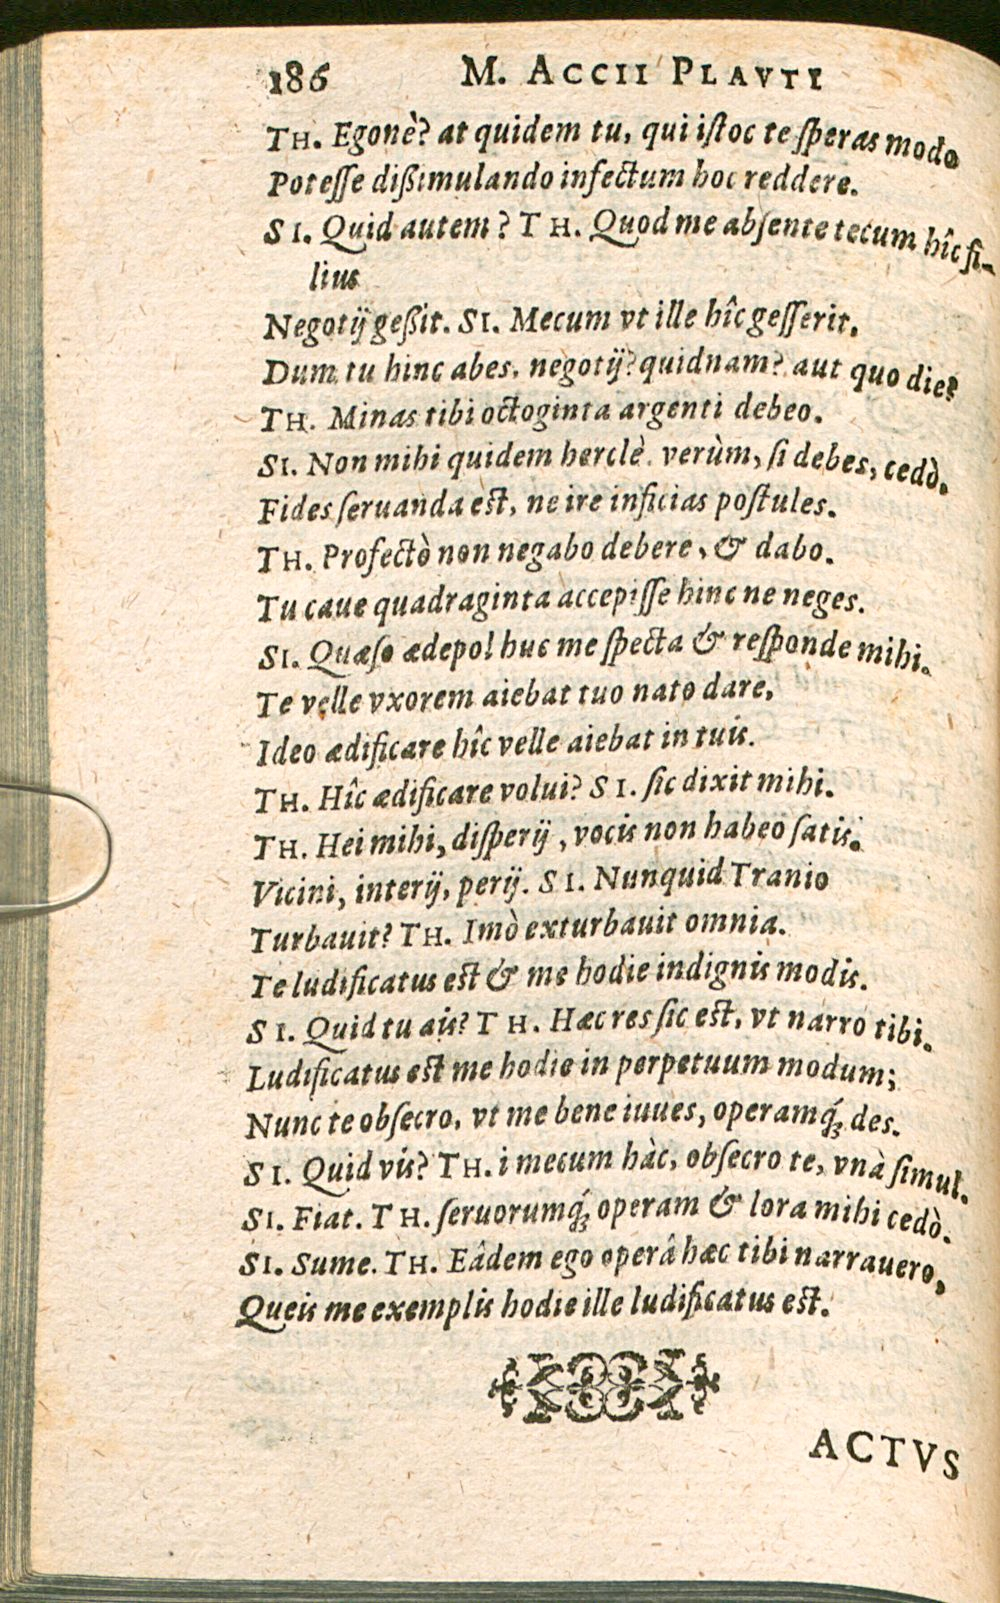 186 M. ACCII PLAVTI
TH. Egonè? at quidem tu, qui iſtoc te ſperas modo
Poteſſe dißimulando infectum hoc reddere.
SI. Quid autem? TH. Quod me abſente tecum hîc fi-
lius
Negotij geßit. SI. Mecum vt ille hîc geſſerit,
Dum tu hinc abes, negotij? quidnam? aut quo die?
TH. Minas tibi octoginta argenti debeo.
SI. Non mihi quidem herclè. verùm, ſi debes, cedò.
Fides ſeruanda eſt, ne ire inficias poſtules.
TH. Profectò non negabo debere, & dabo.
Tu caue quadraginta accepiſſe hinc ne neges.
SI. Quæſo ædepol huc me ſpecta & reſponde mihi.
Te velle vxorem aiebat tuo nato dare,
Ideo ædificare hîc velle aiebat in tuis.
TH. Hîc ædificare volui? SI. ſic dixit mihi.
TH. Hei mihi, diſperij, vocis non habeo ſatis.
Vicini, interij, perij. SI. Nunquid Tranio
Turbauit? TH. Imò exturbauit omnia.
Te ludificatus eſt & me hodie indignis modis.
SI. Quid tu ais? TH. Hæc res ſic eſt, vt narro tibi.
Ludificatus eſt me hodie in perpetuum modum;
Nunc te obſecro, vt me bene iuues, operamq́ꝫ des.
SI. Quid vis? TH. i mecum hàc, obſecro te, vnà ſimul.
SI. Fiat. TH. ſeruorumq́ꝫ operam & lora mihi cedò.
SI. Sume. TH. Eâdem ego operâ hæc tibi narrauero,
Queis me exemplis hodie ille ludificatus eſt.
ACTVS